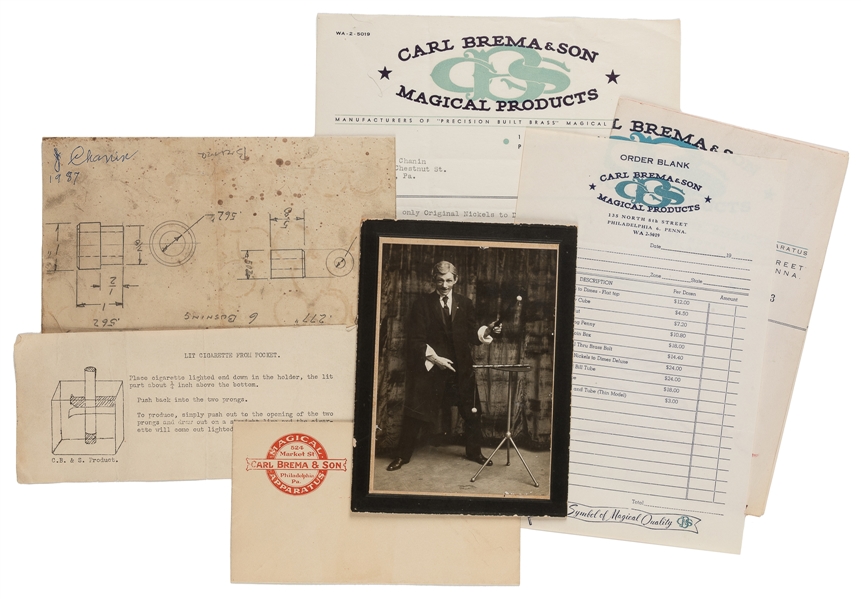 WA-2-5019
CARL BREMA & SON
CBS
MAGICAL PRODUCTS
MANUFACTURERS OF "PRECISION BUILT BRASS" MAGICAL
Chanin
Chestnut St.
Pa.
only Original Nickels to D
J Chanin
1987
Brema
.562"
5/8
2
1
.562
6 BUSHING
.277"
LIT CIGARETTE FROM POCKET.
Place cigarette lighted end down in the holder, the lit
part about ½ inch above the bottom.
Push back into the two prongs.
To produce, simply push out to the opening of the two
prongs and draw out on a
ette will come out lighted
C.B. & S. Product.
MAGICAL
524
Market St
CARL BREMA & SON
Philadelphia
Pa.
APPARATUS
RL BREMA & SON
APPARATUS
REET
NNA.
3
ORDER BLANK
CARL BREMA & SON
CBS
MAGICAL PRODUCTS
135 NORTH 8th STREET
PHILADELPHIA 6, PENNA.
WA 2-5019
Date 19
Zone State
DESCRIPTION Per Dozen Amount
to Dimes - Flat top $12.00
Cube $4.50
ut $7.20
ng Penny $10.80
on Box $18.00
l Thru Brass Ball $14.40
Nickels to Dimes Deluxe $24.00
Bill Tube $24.00
Case $18.00
and Tube (Thin Model) $3.00
Total
Symbol of Magical Quality CBS